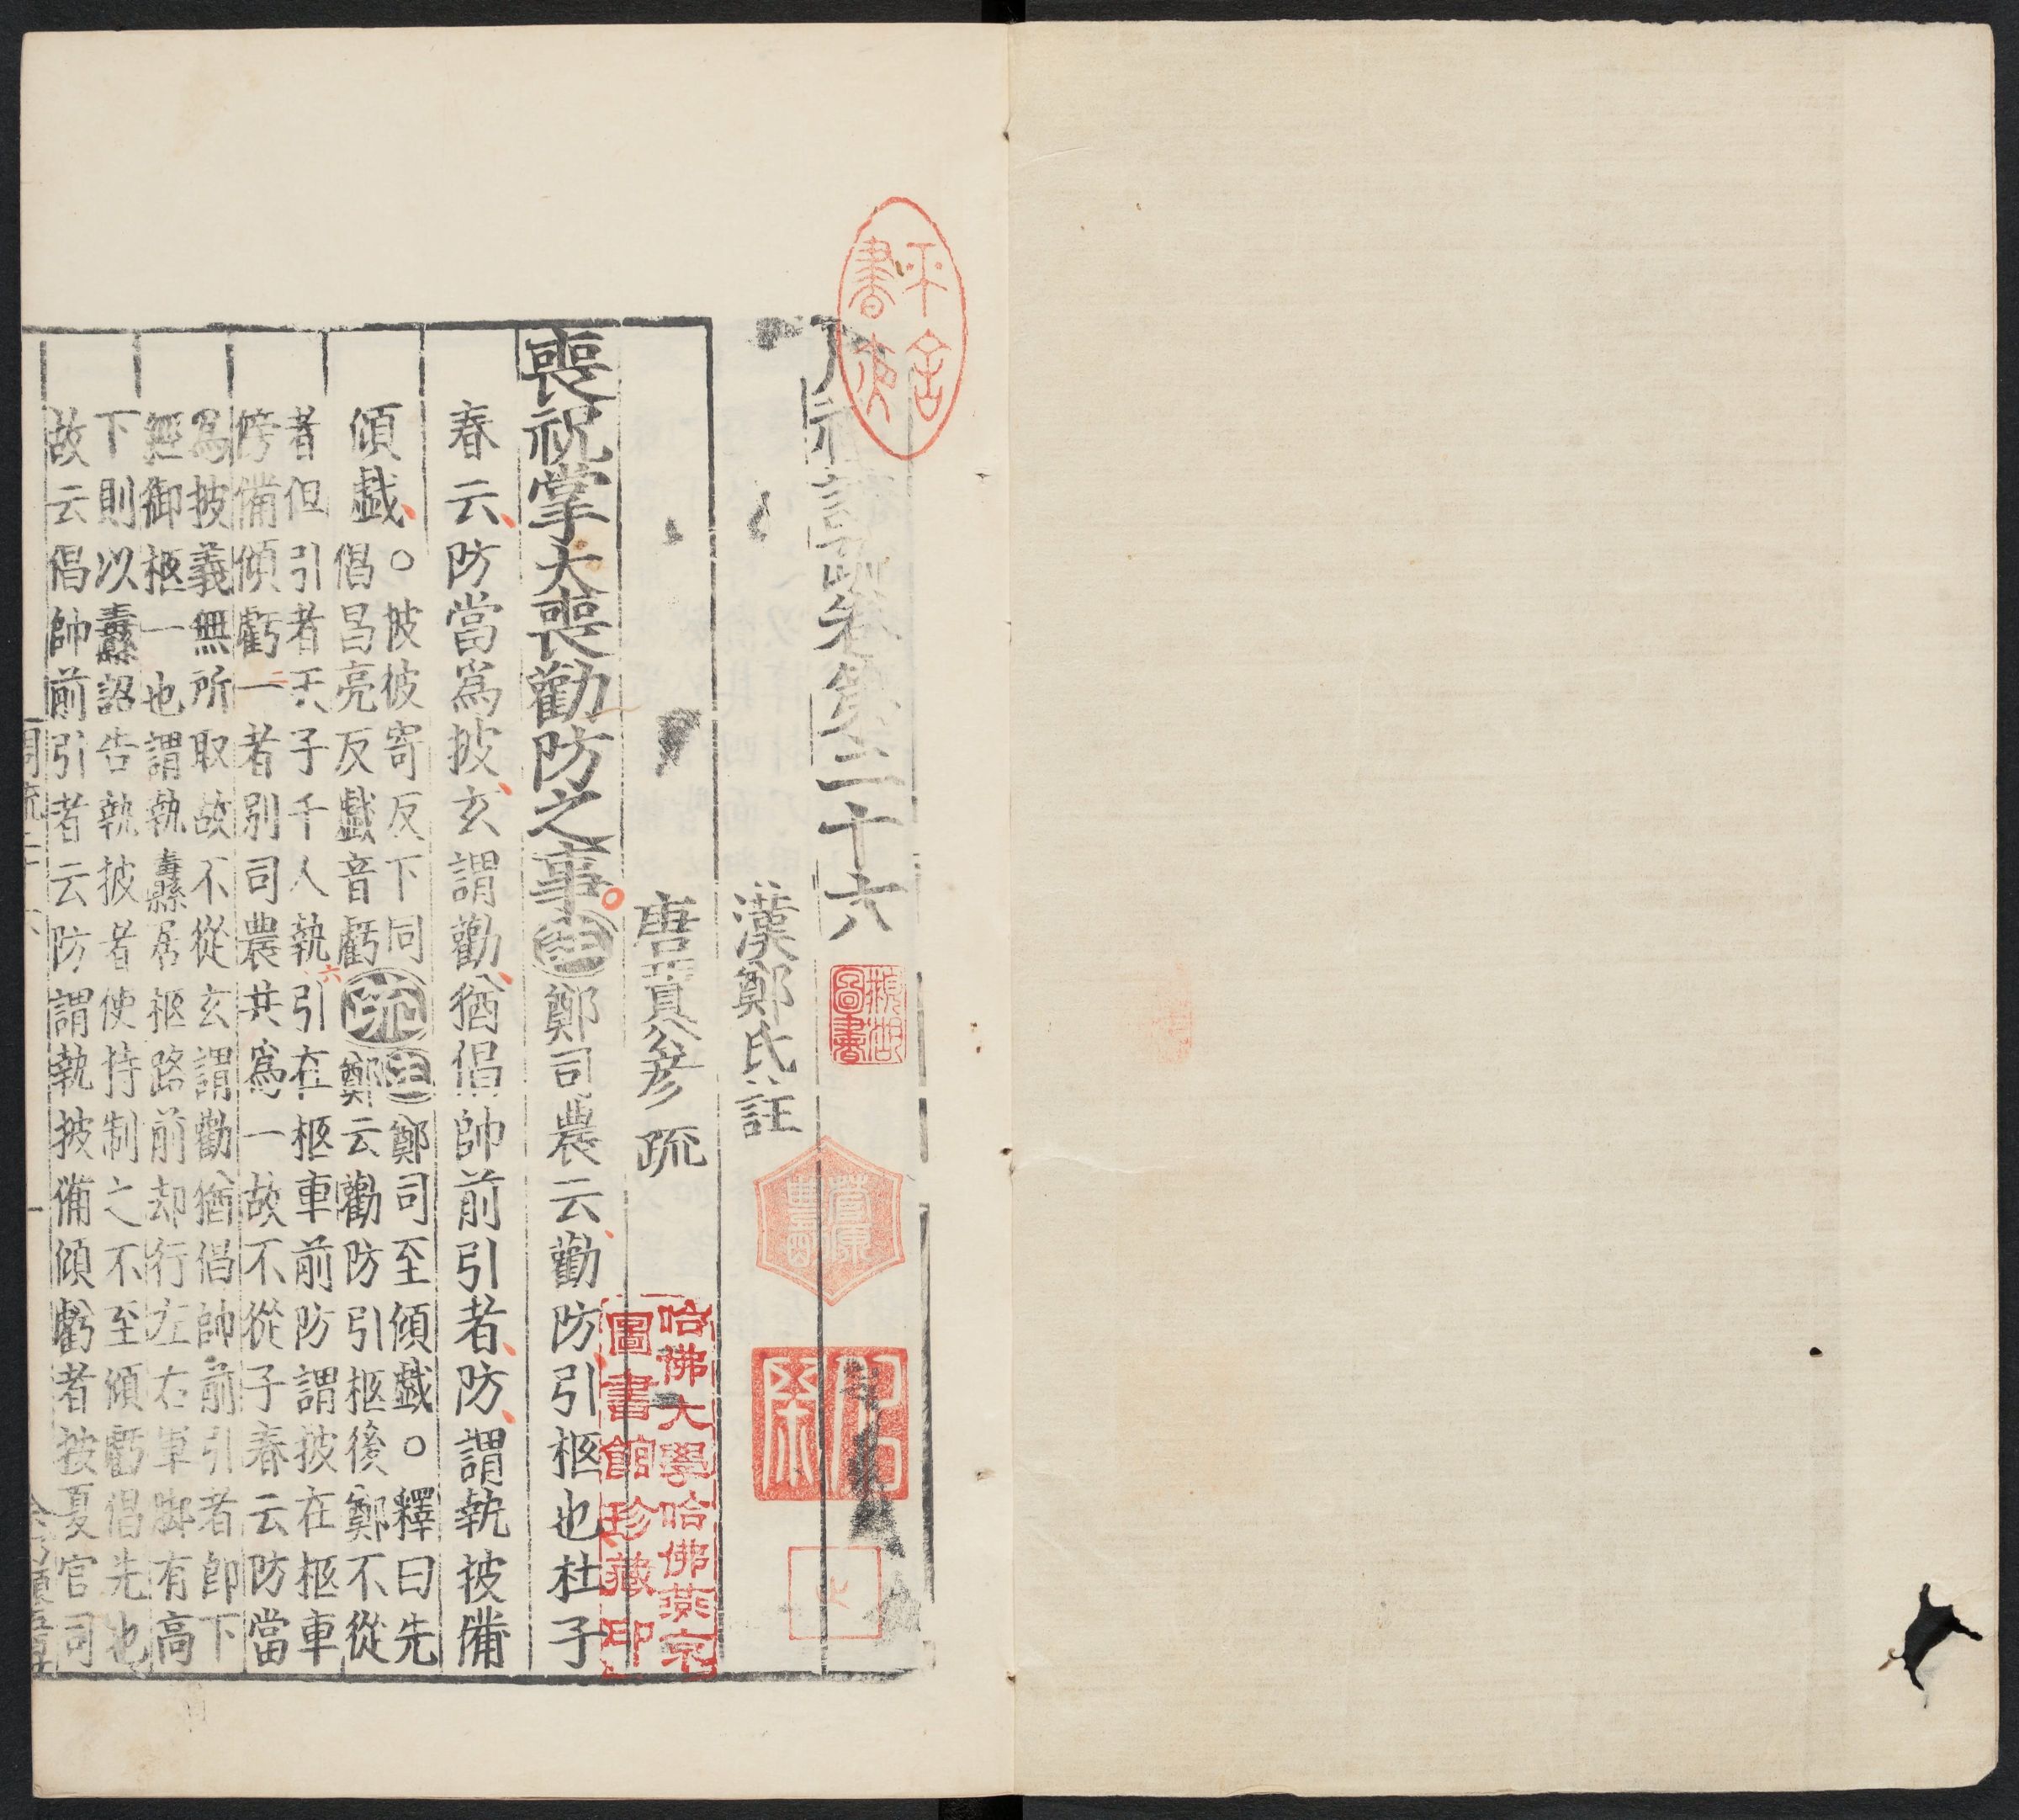 註疏卷第二十六
漢鄭氏註
唐賈公彥疏
喪祝掌大喪勸防之事註鄭司農云勸防引柩也杜子
春云防當爲披玄謂勸猶倡帥前引者防謂執披備
傾戲○披彼寄反下同
倡昌亮反戲音虧
疏註鄭司至傾戲○釋曰先
鄭云勸防引柩後鄭不從
者但引者天子千人執六引在柩車前防謂披在柩車
傍備傾虧二者別司農共爲一故不從子春云防當
爲披義無所取故不從玄謂勸猶倡帥前引者即下
經御柩一也謂執纛居柩路前却行左右車脚有高
下則以纛詔告執披者使持制之不至傾虧倡先也
故云倡帥前引者云防謂執披備傾虧者披夏官司
周疏二十六
一
哈佛大學哈佛燕京
圖書館珍藏印
圖書